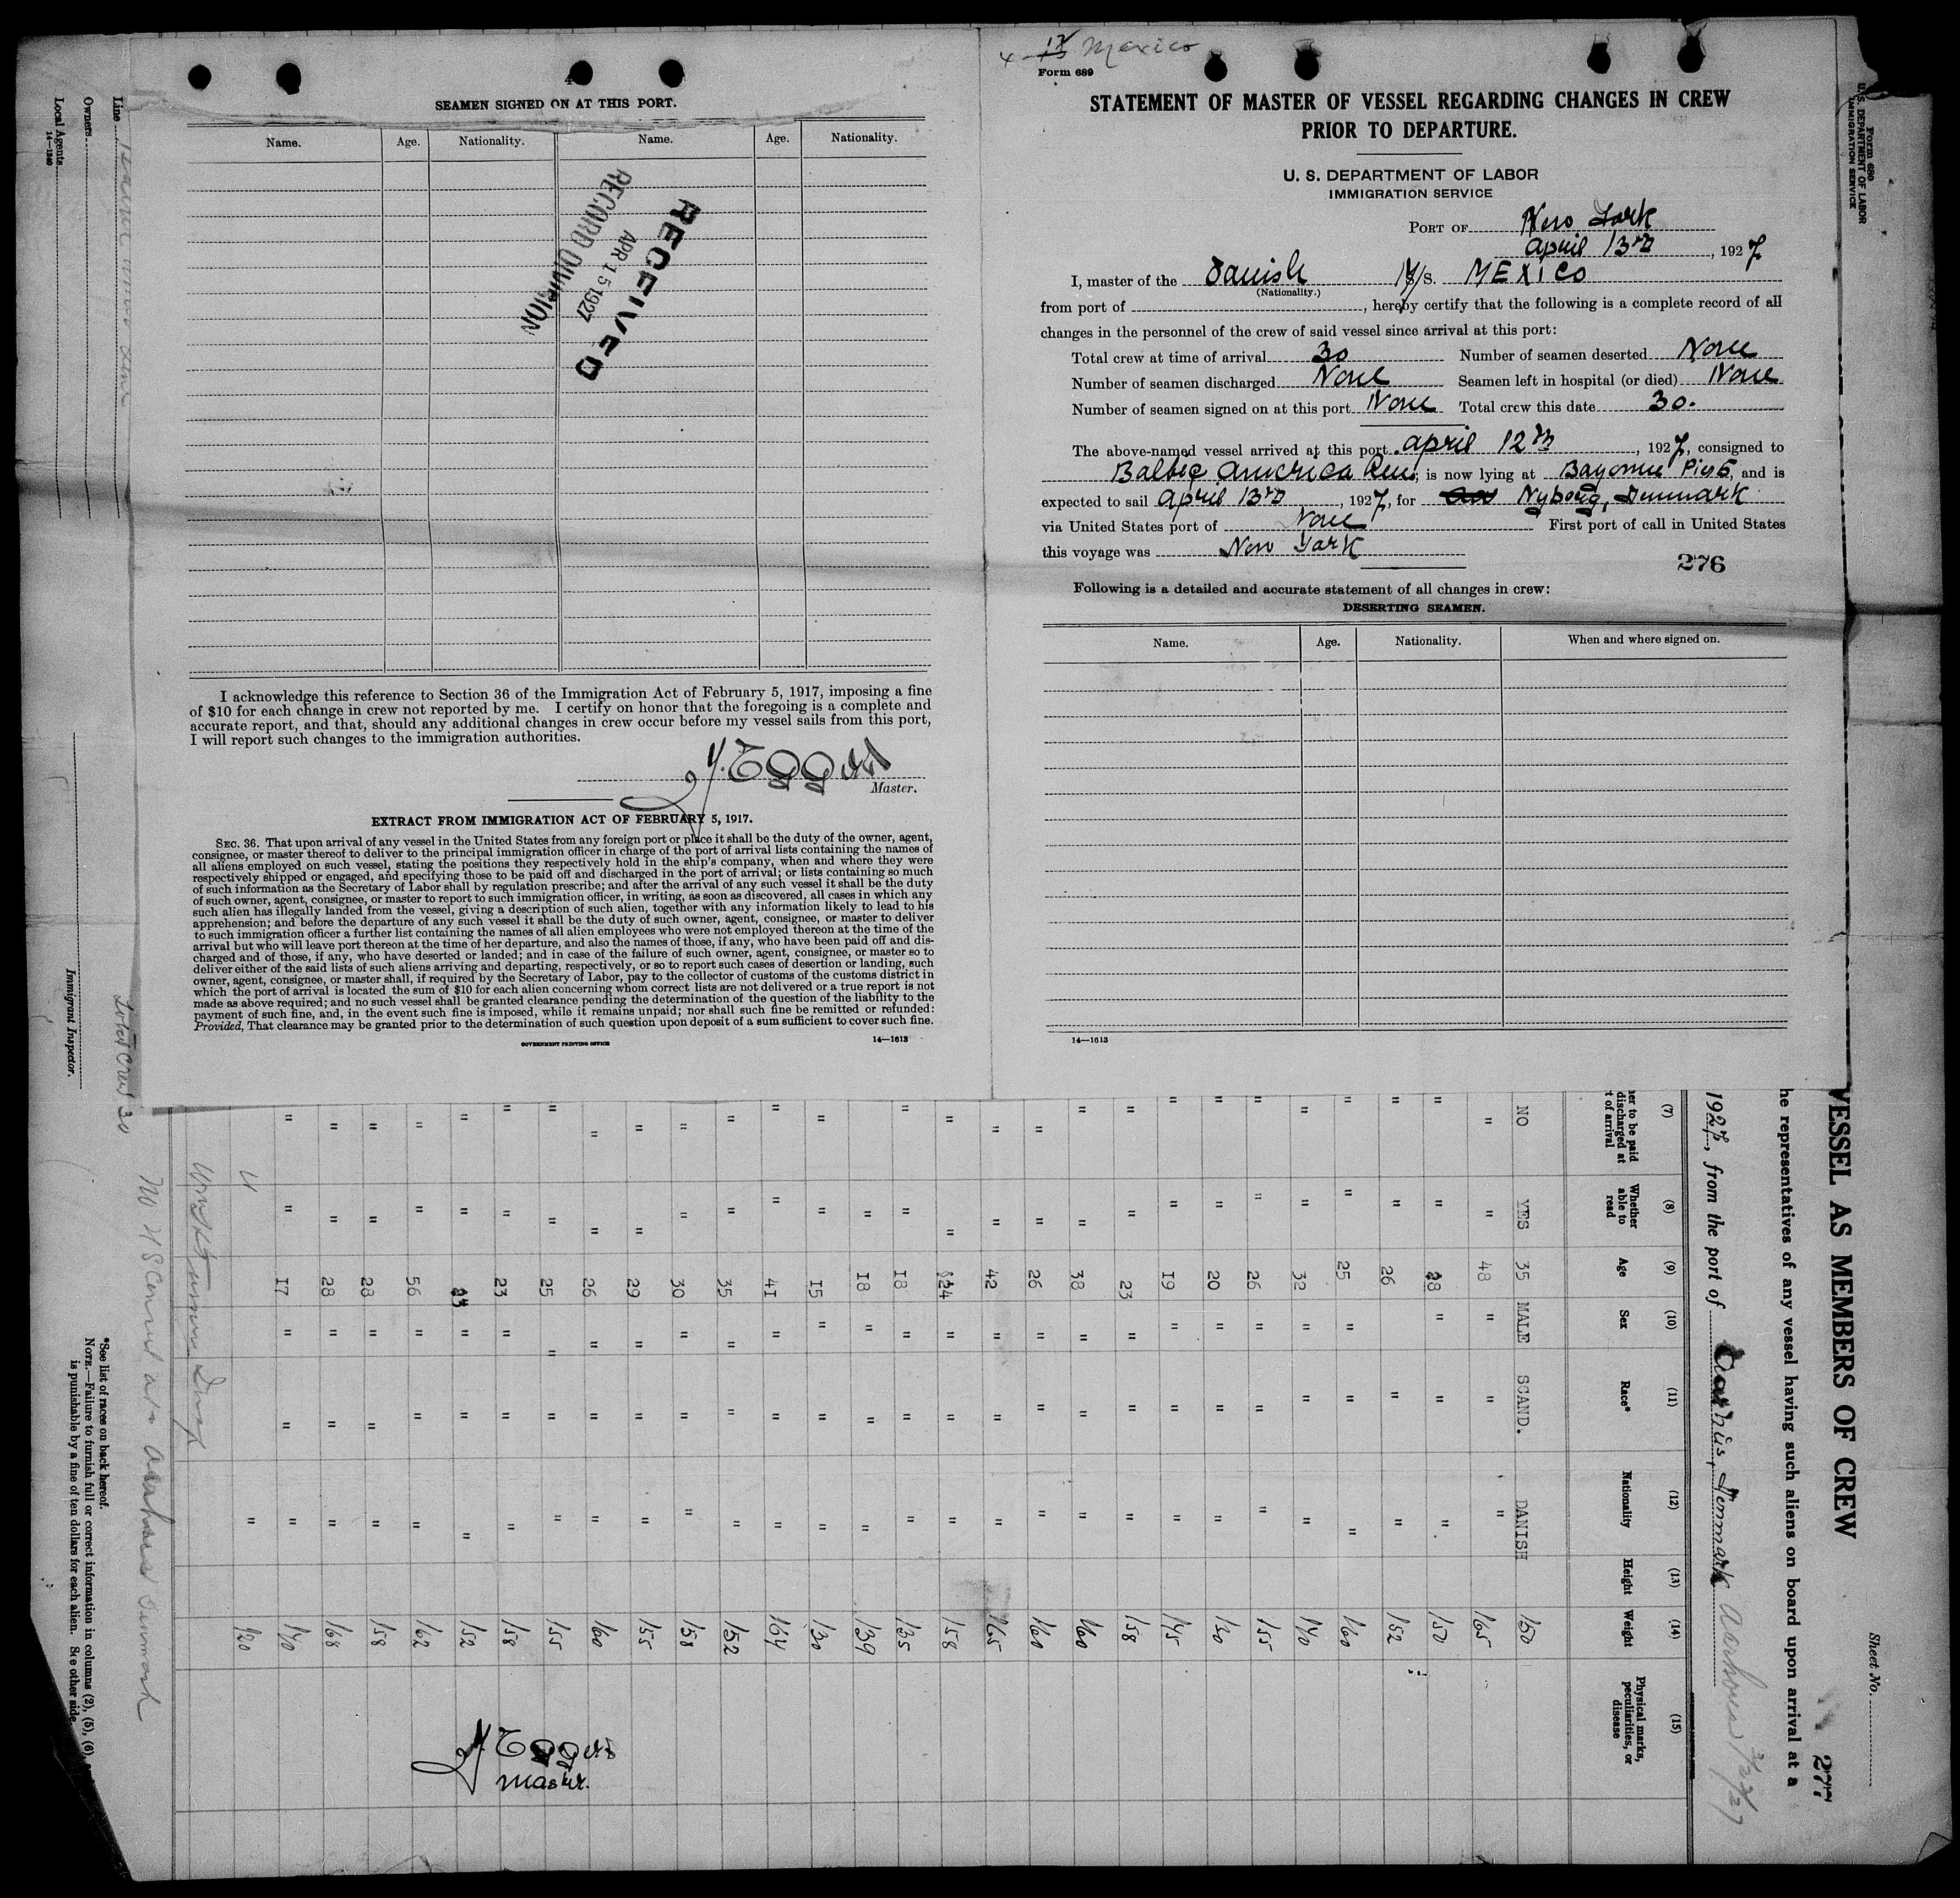 SEAMEN SIGNED ON AT THIS PORT.
Name. Age. Nationality. Name. Age. Nationality.
RECEIVED
APR 15 1927
RECORD DIVISION
I acknowledge this reference to Section 36 of the Immigration Act of February 5, 1917, imposing a fine
of $10 for each change in crew not reported by me. I certify on honor that the foregoing is a complete and
accurate report, and that, should any additional changes in crew occur before my vessel sails from this port,
I will report such changes to the immigration authorities.
Master.
EXTRACT FROM IMMIGRATION ACT OF FEBRUARY 5, 1917.
SEC. 36. That upon arrival of any vessel in the United States from any foreign port or place it shall be the duty of the owner, agent,
consignee, or master thereof to deliver to the principal immigration officer in charge of the port of arrival lists containing the names of
all aliens employed on such vessel, stating the positions they respectively hold in the ship's company, when and where they were
respectively shipped or engaged, and specifying those to be paid off and discharged in the port of arrival; or lists containing so much
of such information as the Secretary of Labor shall by regulation prescribe; and after the arrival of any such vessel it shall be the duty
of such owner, agent, consignee, or master to report to such immigration officer, in writing, as soon as discovered, all cases in which any
such alien has illegally landed from the vessel, giving a description of such alien, together with any information likely to lead to his
apprehension; and before the departure of any such vessel it shall be the duty of such owner, agent, consignee, or master to deliver
to such immigration officer a further list containing the names of all alien employees who were not employed thereon at the time of the
arrival but who will leave port thereon at the time of her departure, and also the names of those, if any, who have been paid off and dis-
charged and of those, if any, who have deserted or landed; and in case of the failure of such owner, agent, consignee, or master so to
deliver either of the said lists of such aliens arriving and departing, respectively, or so to report such cases of desertion or landing, such
owner, agent, consignee, or master shall, if required by the Secretary of Labor, pay to the collector of customs of the customs district in
which the port of arrival is located the sum of $10 for each alien concerning whom correct lists are not delivered or a true report is not
made as above required; and no such vessel shall be granted clearance pending the determination of the question of the liability to the
payment of such fine, and, in the event such fine is imposed, while it remains unpaid; nor shall such fine be remitted or refunded:
Provided, That clearance may be granted prior to the determination of such question upon deposit of a sum sufficient to cover such fine.
GOVERNMENT PRINTING OFFICE 14—1613
Mexico
Form 689
STATEMENT OF MASTER OF VESSEL REGARDING CHANGES IN CREW
PRIOR TO DEPARTURE.
U. S. DEPARTMENT OF LABOR
IMMIGRATION SERVICE
PORT OF New York
April 13th, 1927
I, master of the Danish M/S. MEXICO
(Nationality.)
from port of , hereby certify that the following is a complete record of all
changes in the personnel of the crew of said vessel since arrival at this port:
Total crew at time of arrival 30 Number of seamen deserted None
Number of seamen discharged None Seamen left in hospital (or died) None
Number of seamen signed on at this port None Total crew this date 30.
The above-named vessel arrived at this port April 12th, 1927, consigned to
Baltic America Line; is now lying at Bayonne Pier 6, and is
expected to sail April 13th, 1927, for Nyborg, Denmark
via United States port of None First port of call in United States
this voyage was New York
276
Following is a detailed and accurate statement of all changes in crew:
DESERTING SEAMEN.
Name. Age. Nationality. When and where signed on.
14—1613
Form 680
U. S. DEPARTMENT OF LABOR
IMMIGRATION SERVICE
Sheet No.
277
VESSEL AS MEMBERS OF CREW
he representatives of any vessel having such aliens on board upon arrival at a
1927, from the port of Aarhus, Denmark Aarhous 3/23/27
(7) (8) (9) (10) (11) (12) (13) (14) (15)
her to be paid discharged at t of arrival Whether able to read Age Sex Race* Nationality Height Weight Physical marks, peculiarities, or disease
NO YES 35 MALE SCAND. DANISH 150
" " 48 " " " 165
" " 38 " " " 150
" " 26 " " 152
" " 25 " " " 160
" " 32 " " " 140
" " 26 " " " 155
" " 20 " " " 130
" " 19 " " " 145
" " 23 " " " 158
" " 38 " " " 160
" " 26 " " " 160
" " 42 " " " 165
" " 24 " " " 158
" " 18 " " " 135
" 18 " " " 139
" " 15 " " " 130
" " 41 " " " 164
" " 35 " " " 152
" " 30 " " " 158
" " 29 " " " 155
" " 26 " " " 160
" " 25 " " " 155
" " 23 " " " 158
" " " " " 152
" " 56 " " " 162
" " 28 " " " 158
" " 28 " " " 168
" " 17 " " " 140
" 120
Master.
Total Crew 30
*See list of races on back hereof.
NOTE.—Failure to furnish full or correct information in columns (2), (5), (6),
is punishable by a fine of ten dollars for each alien. See other side.
Immigrant Inspector.
Line
Owners
Local Agents
14—1240